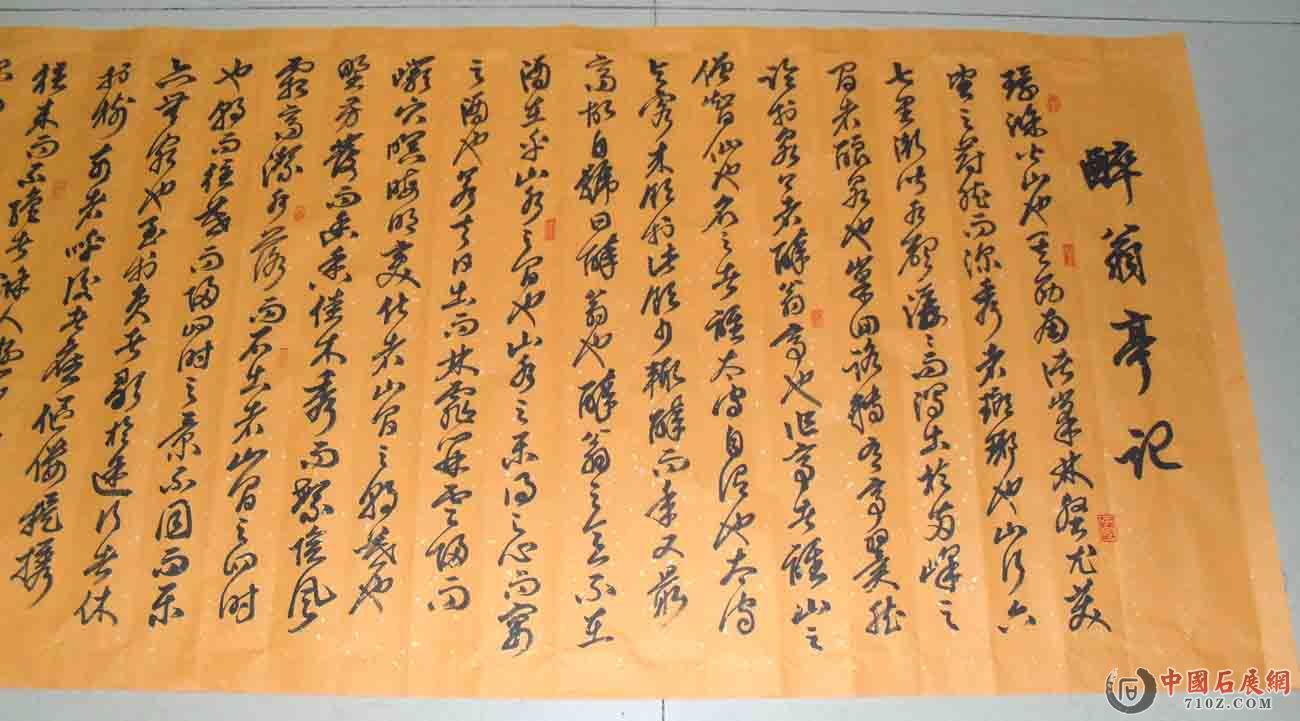 醉翁亭记
环滁皆山也其西南诸峰林壑尤美
望之蔚然而深秀者琅琊也山行六
七里渐闻水声潺潺而泻出於两峰之
间者酿泉也峰回路转有亭翼然
临於泉上者醉翁亭也作亭者谁山之
僧智仙也名之者谁太守自谓也太守
与客来饮於此饮少辄醉而年又最
高故自號曰醉翁也醉翁之意不在
酒在乎山水之间也山水之乐得之心而寓
之酒也若夫日出而林霏开云归而
巖穴暝晦明变化者山间之朝暮也
野芳发而幽香佳木秀而繁阴风
霜高潔水落而石出者山间之四时
也朝而往暮而归四时之景不同而乐
亦無穷也至於负者歌於途行者休
於树前者呼後者应伛偻提携
往来而不绝者滁人游
中國石展網
710Z.COM